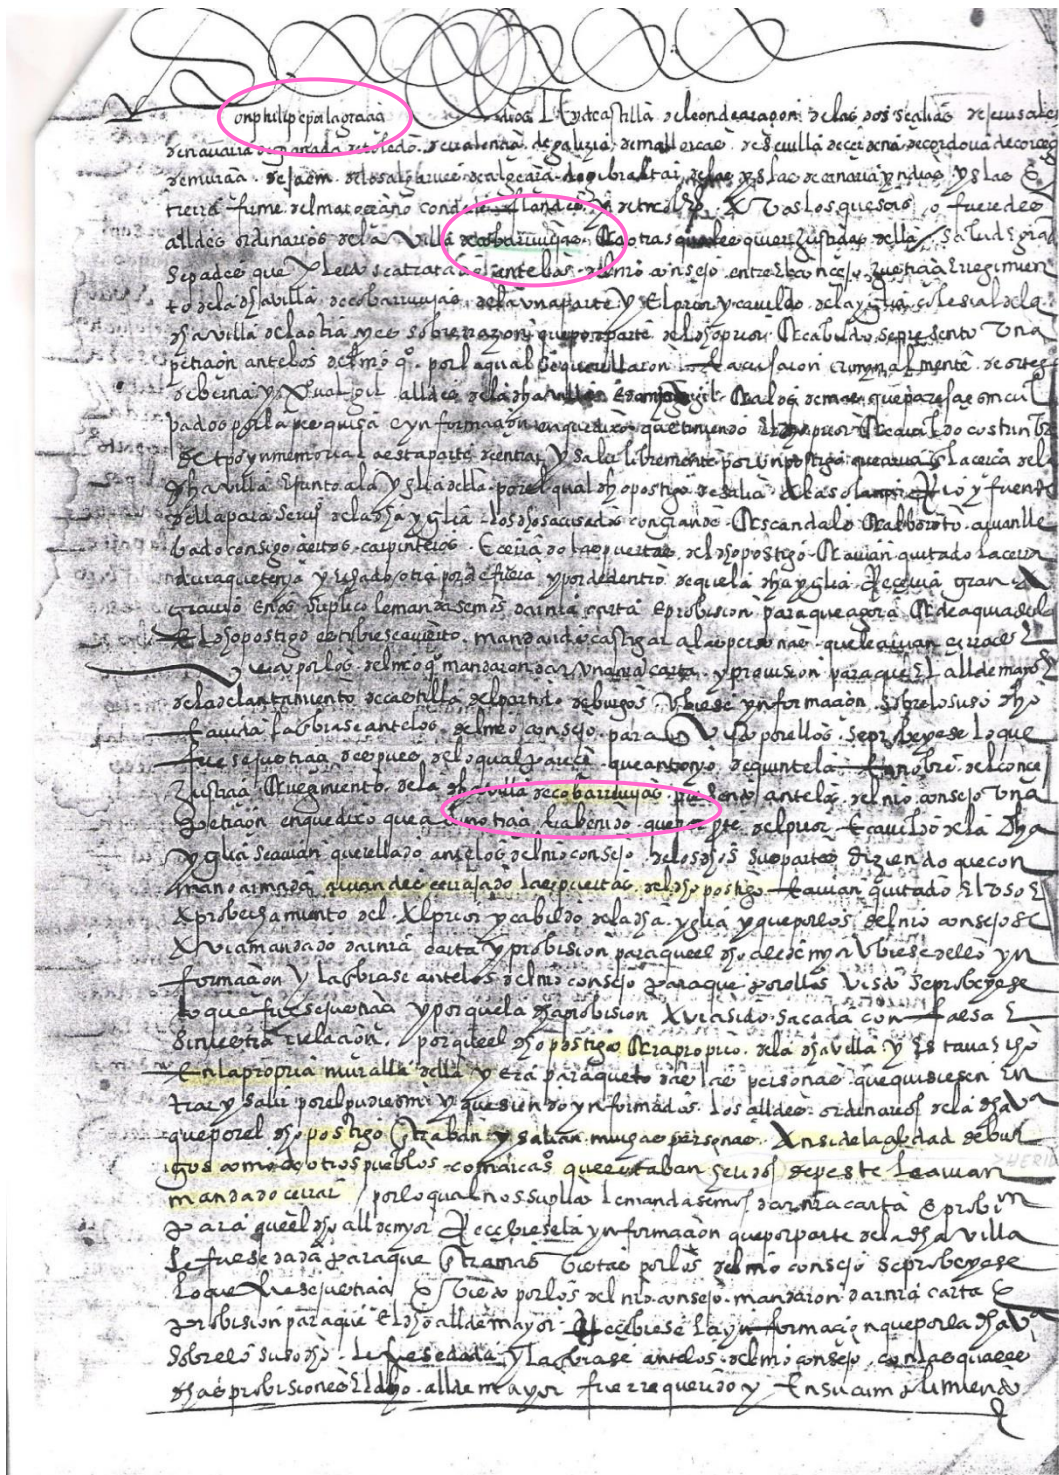 on philipe por la graçia de dios Rey de castilla de leon de aragon de las dos seçilias de jerusalen
de navarra de granada de toledo de valençia de galizia de mallorcas de sevilla de çerdeña de cordova de corçega
de murçia de jaen de los algarves de algezira de gibraltar de las yslas de canaria yndias yslas E
tierra firme del mar oçeano conde de flandes y de tirol A vos los que sois o fueredes
alldes ordinarios de la Villa de cobarruvias A otras quales quier Justiçias della Salud E graçia
Sepades que Pleito se a tratado ante los del nro consejo entre El conçejo Justiçia E rregimien
to de la dha villa de cobarruvias de la una parte y El prior y cavildo de la yglia colesial de la
dha villa de la otra sobre razon que por parte del dho prior A cabildo se presento Una
petiçion ante los del nro qº por la qual se querellaron criminalmente de
de la dha villa A a los demas que pareçiesen cul
pados por la pesquisa e ynformaçion en que dixo que tiniendo El dho prior A cavildo costunbre
de tpo ynmemorial a esta parte de entrar Y salir libremente por un postigo que avia en la çerca de la
dha villa E junto a la Yglia della por el qual dho postigo se salia al Rio y fuente
della para serviçio de la dha yglia los dhos acusados con grande Ascandalo A alboroto avian lle
bado consigo çiertos carpinteros E çerrado las puertas del dho postigo A avian quitado la çerra
dura que tenia y Echado otra por de fuera y por de dentro de que la dha yglia Reçevia gran A
gravio E nos suplico le mandasemos dar nra carta E probision para que agora A de aqui adelante
El dho postigo estubiese avierto mandando castigar a las personas que le avian çerrado E
Visto por los del nro qº mandaron dar Una nra carta y provision para que El allde mayor
del adelantamiento de castilla del partido de burgos Ubiese ynformaçion sobre lo suso dho
E avida la enbiase ante los del nro consejo para Visto por ellos se probeyese lo que
fuese justiçia despues de lo qual pareçe que antonyo de quintela En nonbre del conçejo
Justiçia A rregimiento de la dha villa de cobarruvias presento ante los del nro consejo Una
petiçion en que dixo que a su notiçia hera benido que por pte del prior E cavildo de la dha
yglia se avian querellado ante los del nro consejo de los dhos sus partes diziendo que con
mano armada avian desçerrajado las puertas del dho postigo E avian quitado El uso E
Aprobechamiento del Al prior y cabildo de la dha yglia y que por los del nro consejo se
Avia mandado dar nra carta y probision para que el dho alcde myor Ubiese dello yn
formaçion Y la enbiase ante los del nro consejo para que por ellos Visto se probeyese
lo que fuese justiçia y porque la dha probision Avia sido sacada con falsa E
siniestra relaçion porque el dho postigo Era propio de la dha villa y Estava hecho
En la propria muralla della y era para que todas las personas que quisiesen en
trar y salir por el pudiesen y que siendo ynformados los alldes ordinarios de la dha Vª
que por el dho postigo Entraban y salian muchas personas Ansi de la çiudad de bur
gos como de otros pueblos comarcanos que estaban heridos de peste le avian
mandado çerrar por lo qual nos suplico le mandasemos dar nra carta E probision
para que el dho allde myor Reçebiese la ynformaçion que por parte de la dha villa
le fuese dada para que Entramas Vistas por los del nro consejo se probeyese
lo que fuese justiçia E Visto por los del nro consejo mandaron dar nra carta E
probision para que El dho allde mayor Reçebiese la ynformaçion que por la dha Vª
sobre lo suso dho le fuese dada Y la enbiase ante los del nro consejo con las quales
dhas probisiones El dho allde mayor fue rrequerido y En su cumplimiento